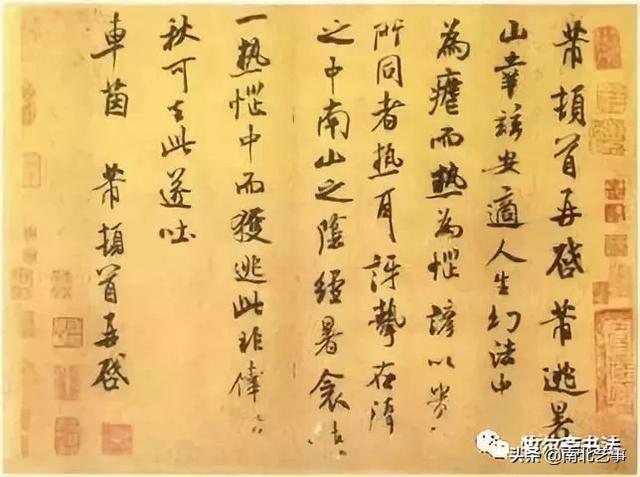 芾頓首再啓芾逃暑
山幸兹安適人生幻法中
為瘧而熱為惱諺以貴
所同者熱耳訝摯在
之中南山之陰經暑衾
一熱惱中而獲逃此非倖
秋可去此遂吐
車茵 芾頓首再啓
书法
头条 @南北艺事